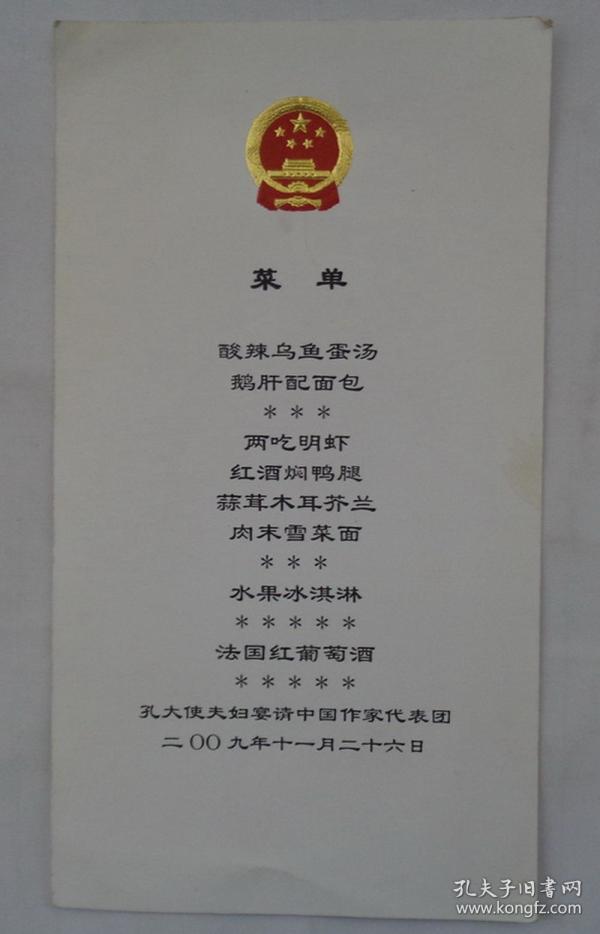 菜 单
酸辣乌鱼蛋汤
鹅肝配面包
＊＊＊
两吃明虾
红酒焖鸭腿
蒜茸木耳芥兰
肉末雪菜面
＊＊＊
水果冰淇淋
＊＊＊＊＊
法国红葡萄酒
＊＊＊＊＊
孔大使夫妇宴请中国作家代表团
二00九年十一月二十六日
孔夫子旧书网
www.kongfz.com